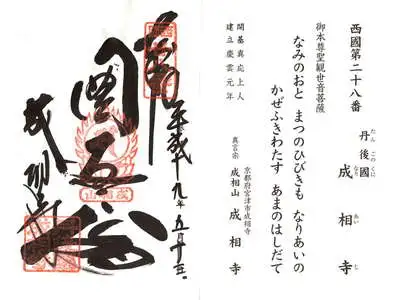 西國第二十八番
丹後國 成相寺
たんごのくに なりあいじ
御本尊聖観世音菩薩
なみのおと まつのひびきも なりあいの
かぜふきわたす あまのはしだて
開基真応上人
建立慶雲元年
京都府宮津市成相寺
真言宗 成相山 成相寺
奉拝
平成十九年五月十三日
圓通閣
成相寺